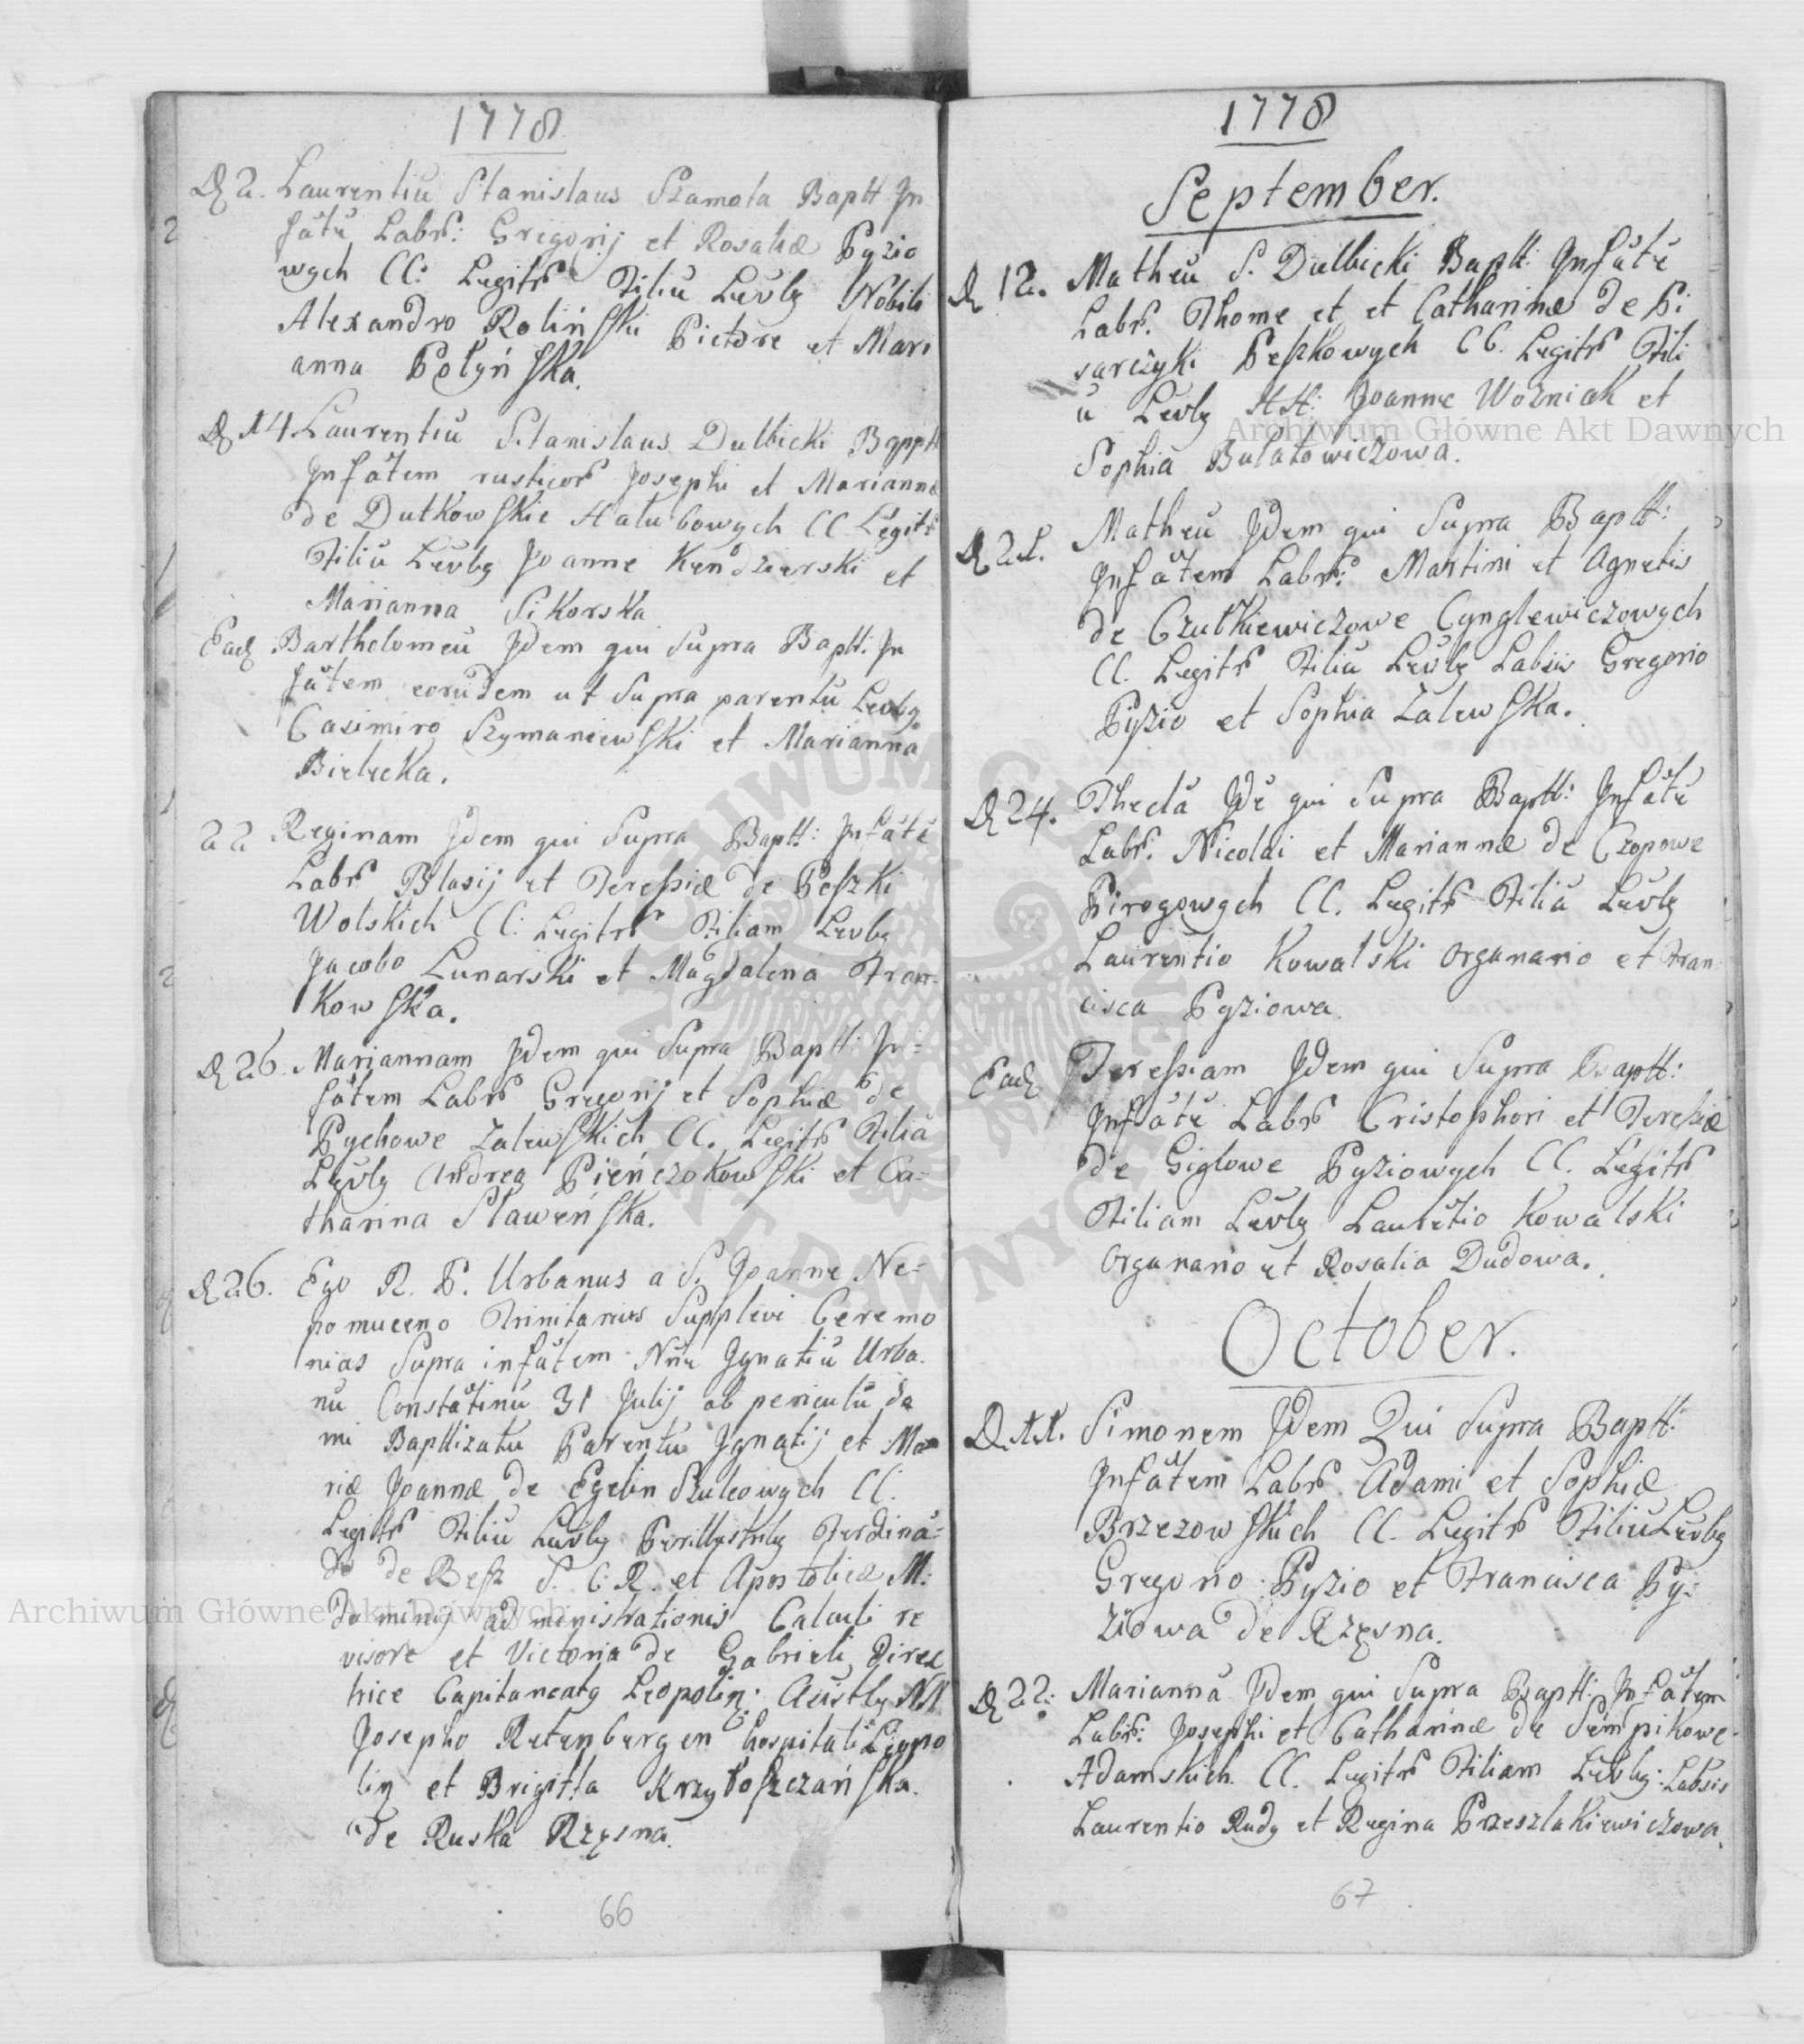 1778
D 2. Laurentiu Stanislaus Szamota Baptt. In
fāte Labr: Gregorij et Rosaliæ Pyzio
wych CC: Legitr Filiu Levbg Nobili
Alexandro Roliński Pictore et Mari
anna Połyńska.
D 14 Laurentiu Stanislaus Dulbicki Bappt
Infātem rusticor Josephi et Mariannæ
de Dutkowskie Hałubowych CC Legitr
Filiu Levbg Joanne Kendzierski et
Marianna Sikorska
Ead Bartholomeu Jdem qui Supra Baptt. In
fātem eorudem ut Supra parentu Levbg
Casimiro Szymaniewski et Marianna
Bielecka.
22 Reginam Jdem qui Supra Baptt: Infāte
Labr Blasij et Teressiæ de Peszki
Wolskich CC: Legitr Filiam Levbg
Jacobo Lunarski et Magdalena Fran-
Kowska.
D 26. Mariannam Jdem qui Supra Baptt: In=
fātem Labr Gregorij et Sophiæ de
Pychowe Zalewskich CC. Legitr Filiā
Levbg Andrea Pieńczokowski et Ca=
tharina Sławeńska.
D 26. Ego R. P. Urbanus a S. Joanne Ne=
pomuceno Trinitarius Supplevi Ceremo
nias Supra infātem Nñe Jgnatiu Urba.
nu Constātinū 31 Julij ob periculū do
mi Baptizatu Parentu Jgnatij et Ma
riæ Joannæ de Egelin Szulcowych CC.
Legitr Filiu Levbg Perillustribg Ferdinā=
do de Bessz S. C. R. et Apostolicæ M:
administrationis Calculi re
visore et Victoria de Gabrieli Direc
trice Capitaneatg Leopolin:
Josepho Retenbergen hospitali Leopo
lin et Brigitta Krzytoszczańska.
de Ruska Rzęsna.
66
1778
September.
D 12. Matheu S. Dulbicki Baptt. Infāte
Labr. Thome et et Catharinæ de Pi
sarczyki Peszkowych CC. Legitr Fili
u Levbg HH: Joanne Wozniak et
Sophia Bulatowiczowa.
D 21. Matheu Jdem qui Supra Baptt:
Infātem Labr: Martini et Agnetis
de Czulkiewiczowe Cynglewiczowych
CC. Legitr Filiu Levbg Labsis Gregorio
Pyzio et Sophia Zalewska.
D 24. Theclā Jdē qui Supra Baptt: Infātē
Labr. Nicolai et Mariannæ de Czopowe
Pirogowych CC. Legitr Filiā Levbg
Laurentio Kowalski organario et Fran
cisca Pyziowa.
Ead Teressiam Jdem qui Supra Baptt:
Infāte Labr Cristophori et Teressiæ
de Giglowe Pyziowych CC. Legitr
Filiam Levbg Laurētio Kowalski
Organario et Rosalia Dudowa.
October.
D. 11. Simonem Jdem Qui Supra Baptt:
Infātem Labr. Adami et Sophiæ
Brzezowskich CC. Legitr Filiu Levbg
Gregorio Pyzio et Francisca Py:
ziowa de Rzęsna.
D 22: Mariannā Jdem qui Supra Baptt: Infātem
Labr: Josephi et Catharinæ de Sempikowe
Adamskich. CC. Legitr Filiam Levbg: Labsis
Laurentio Rudy et Regina Przeszlakiewiczowa.
67
Archiwum Główne Akt Dawnych
Archiwum Główne Akt Dawnych
ARCHIWUM GŁÓWNE AKT DAWNYCH